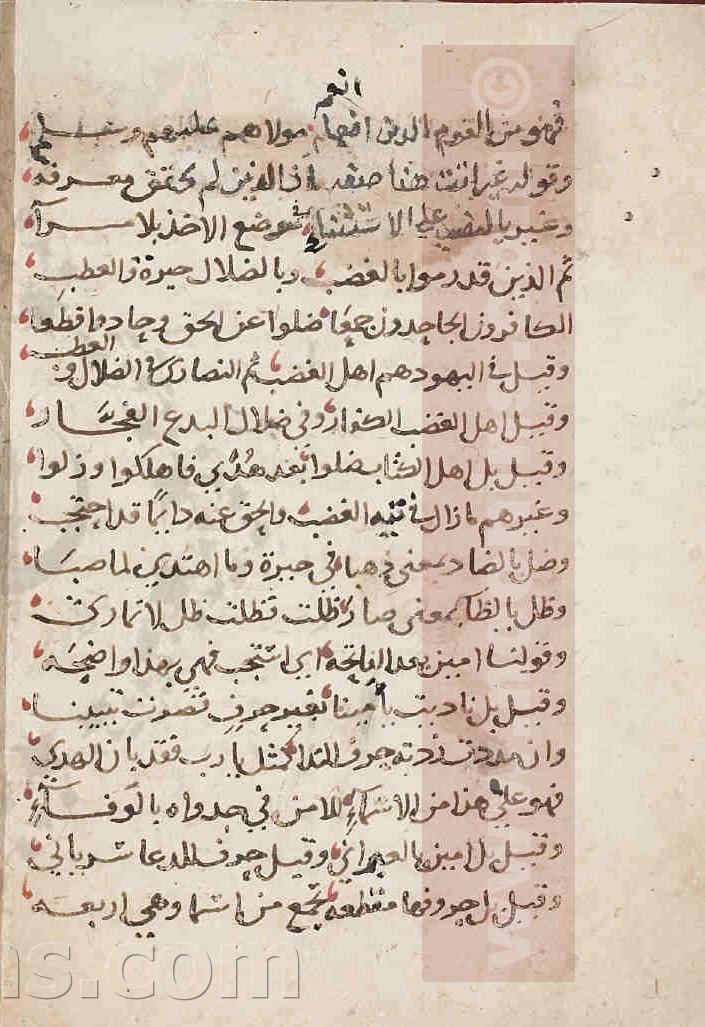 انعم
فهو من القوم الذين انعما مولاهم عليهم وسلما
وقوله غير اتت هنا صفه اذ الذين لم يحقق معرفه
وغير بالنصب على الاستثناء في موضع الاخذ بلا مرآء
ثم الذين قدرموا بالغضب وبالضلال حيرة في العطب
الكافرون الجاحدون جمعا ضلوا عن الحق وحادوا قطعا
وقيل في اليهود هم اهل الغضب ثم النصارى في الضلال و العطب
وقيل اهل الغضب الكفار وفي ضلال البدع الفجار
وقيل بل اهل الكتاب ضلوا بعد هدي فاهلكوا وذلوا
وغيرهم ما زال في تيه الغضب والحق عنه دايما قد احتجب
وضل بالضاد بمعنى ذهبا في حيرة وما اهتدي لما صبا
وظل بالظا بمعنى صار ظلت فظلت ظل لا تماري
وقولنا امين بعد الفاتحه اي استجب فهي بهذا واضحه
وقيل بل ناديت يا مينا بغير حرف تصوت تبيينا
وان مددت زدته حرف الندا كمثل يا رب فقد بان الهدي
فهو علي هذا من الاسماء للامن في حدواه بالوفاء
وقيل بل امين بالعبراني وقيل حرف للدعا سرياني
وقيل بل حروفها مقطعه تجمع من اسما وهي اربعه
www.
©
ns.com